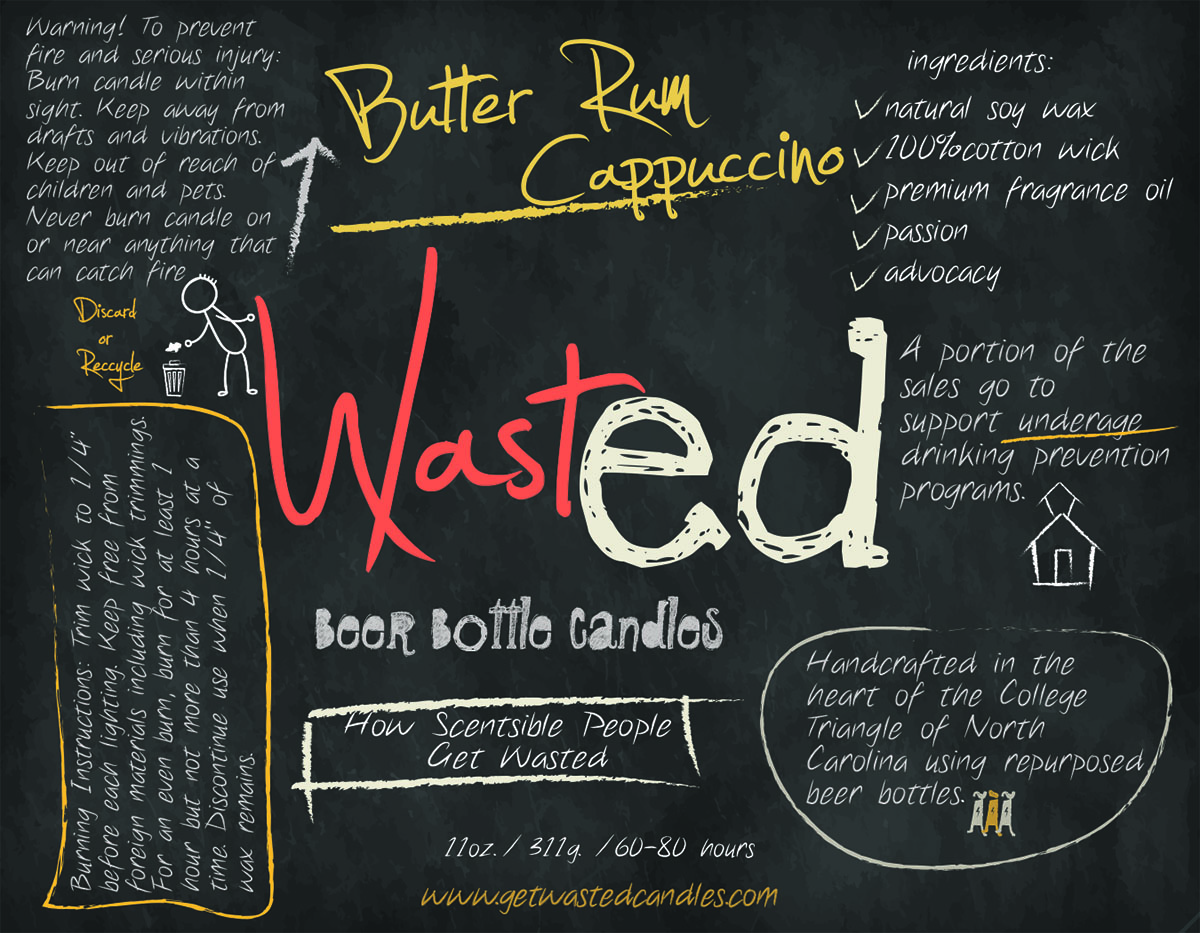 Warning! To prevent
fire and serious injury:
Burn candle within
sight. Keep away from
drafts and vibrations.
Keep out of reach of
children and pets.
Never burn candle on
or near anything that
can catch fire
Discard
or
Reccycle
Burning Instructions: Trim wick to 1/4"
before each lighting. Keep free from
foreign materials including wick trimmings.
For an even burn, burn for at least 1
hour but not more than 4 hours at a
time. Discontinue use when 1/4" of
wax remains.
Butter Rum
Cappuccino
Wasted
Beer Bottle Candles
How Scentsible People
Get Wasted
11oz. / 311g. / 60-80 hours
www.getwastedcandles.com
ingredients:
natural soy wax
100%cotton wick
premium fragrance oil
passion
advocacy
A portion of the
sales go to
support underage
drinking prevention
programs.
Handcrafted in the
heart of the College
Triangle of North
Carolina using repurposed
beer bottles.